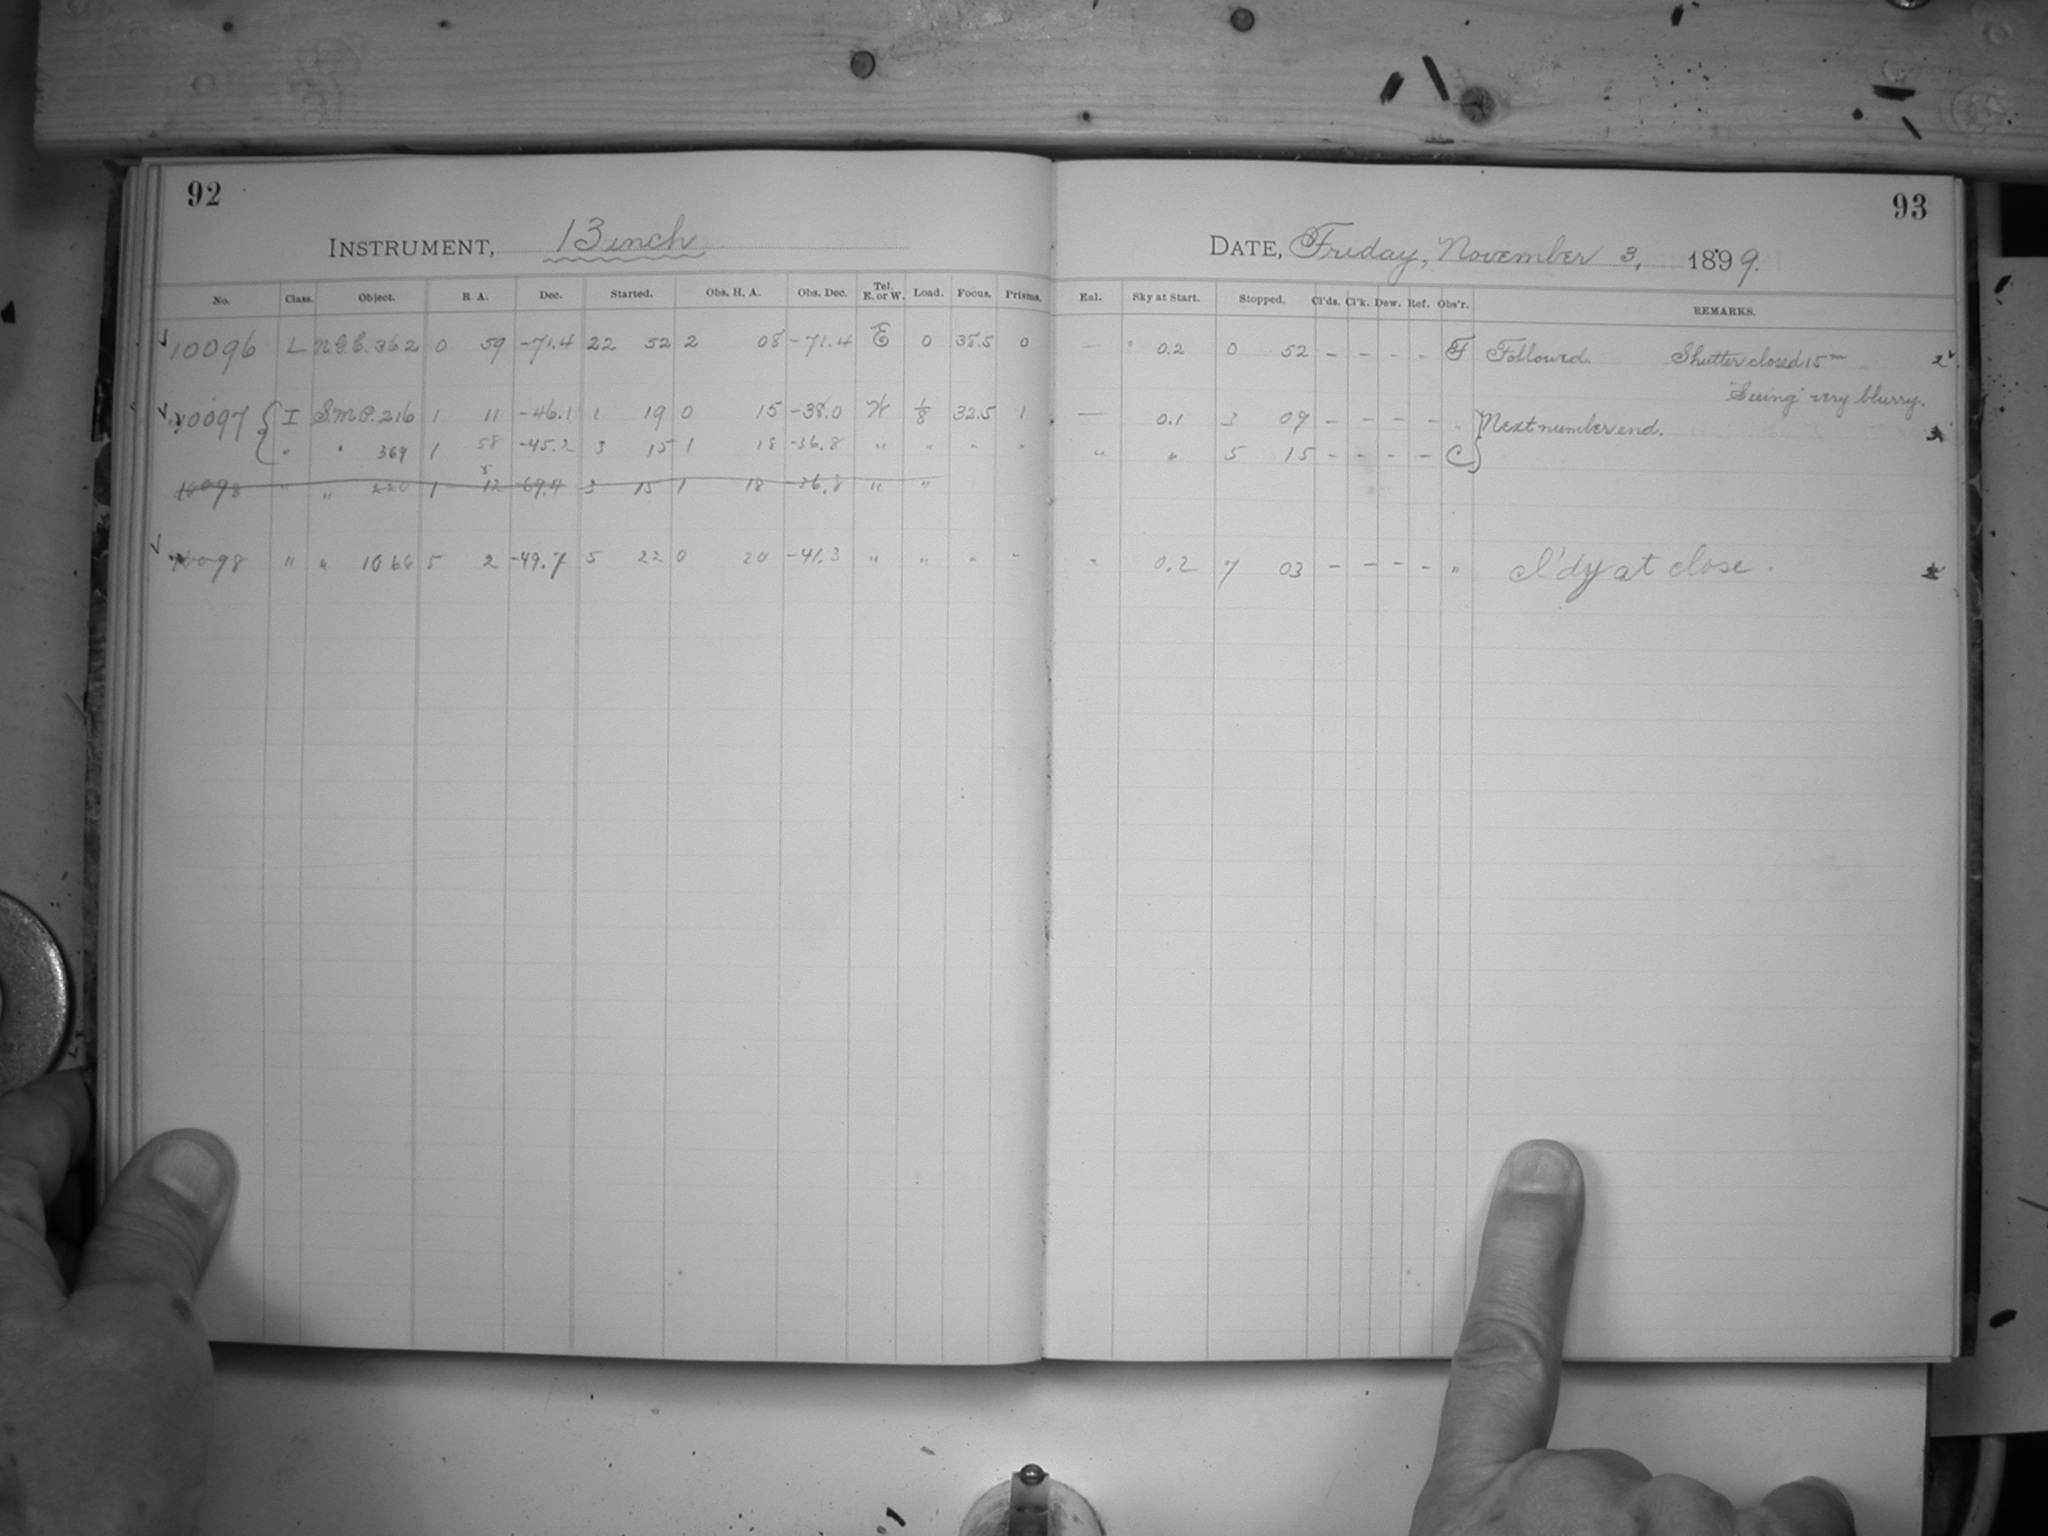 92
INSTRUMENT, 13 inch
No. Class. Object. R. A. Dec. Started. Obs. H. A. Obs. Dec. Tel. E. or W. Load. Focus. Prisms.
10096 L N.G.C. 362 0 59 -71.4 22 52 2 08 -71.4 E 0 38.5 0
10097 I S.M.P. 216 1 11 -46.1 1 19 0 15 -38.0 W 1/8 32.5 1
" " 369 1 58 -45.2 3 15 1 18 -36.8 " " " "
10098 " " 220 1 12 -69.4 3 15 1 18 -36.8 " "
10098 " " 1066 5 2 -49.7 5 22 0 20 -41.3 " " " "
93
DATE, Friday, November 3, 1899.
Enl. Sky at Start. Stopped. Cl'ds. Cl'k. Dew. Ref. Obs'r. REMARKS.
— 0.2 0 52 - - - - F Followed. Shutter closed 15m 2
"Seeing" very blurry.
— 0.1 3 09 - - - - " Next number end.
" " 5 15 - - - - C
" 0.2 7 03 - - - - " Cl'dy at close.